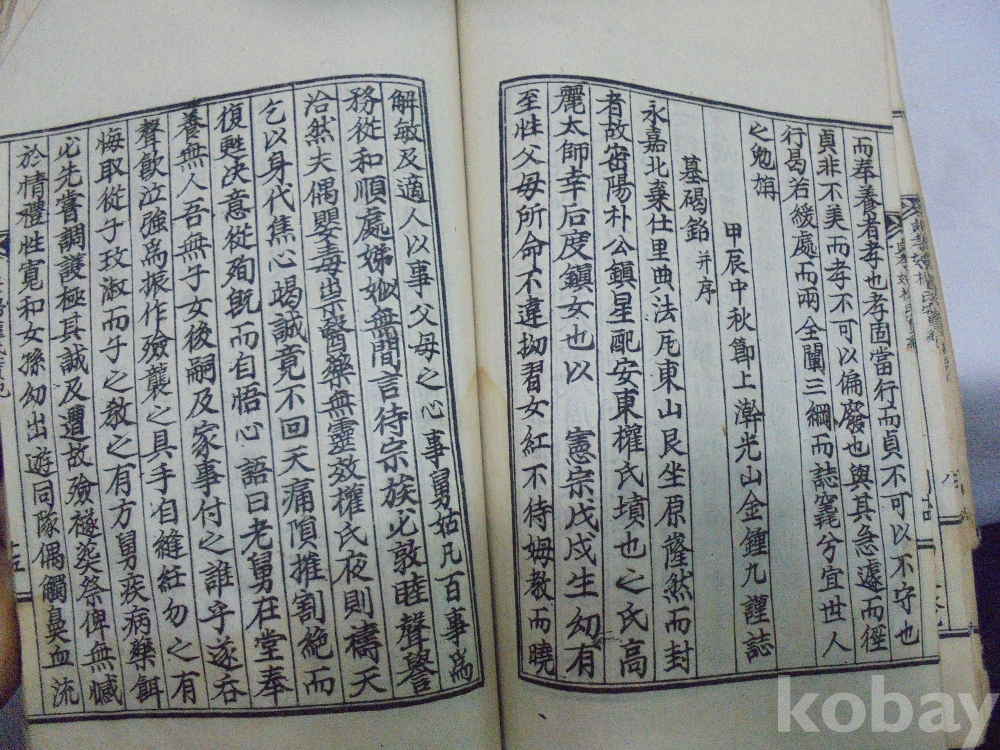 而奉養者孝也孝固當行而貞不可以不守也
貞非不美而孝不可以偏廢也與其急遽而徑
行曷若綏處而兩全闡三綱而誌窀兮宜世人
之勉旃
甲辰中秋節上澣光山金鍾九謹誌
墓碣銘 幷序
永嘉北棄仕里曲法尾東山艮坐原薩然而封
者故密陽朴公鎭星配安東權氏墳也之氏高
麗太師幸后度鎭女也以 憲宗戊戌生幼有
至性父母所命不違拗習女紅不待姆敎而曉
解敏及適人以事父母之心事舅姑凡百事爲
務從和順處娣姒無間言待宗族必敦睦聲譽
洽然夫偶嬰毒祟醫藥無靈效權氏夜則禱天
乞以身代焦心竭誠竟不回天痛隕摧割絶而
復甦决意從殉旣而自悟心語曰老舅在堂奉
養無人吾無子女後嗣及家事付之誰乎遂呑
聲飮泣强爲振作殮襲之具手自縫紝勿之有
悔取從子玟淑而子之敎之有方舅疾病藥餌
必先嘗調護極其誠及遭故殮襚葬祭俾無憾
於情禮性寬和女孫幼出遊同隊偶觸鼻血流
kobay